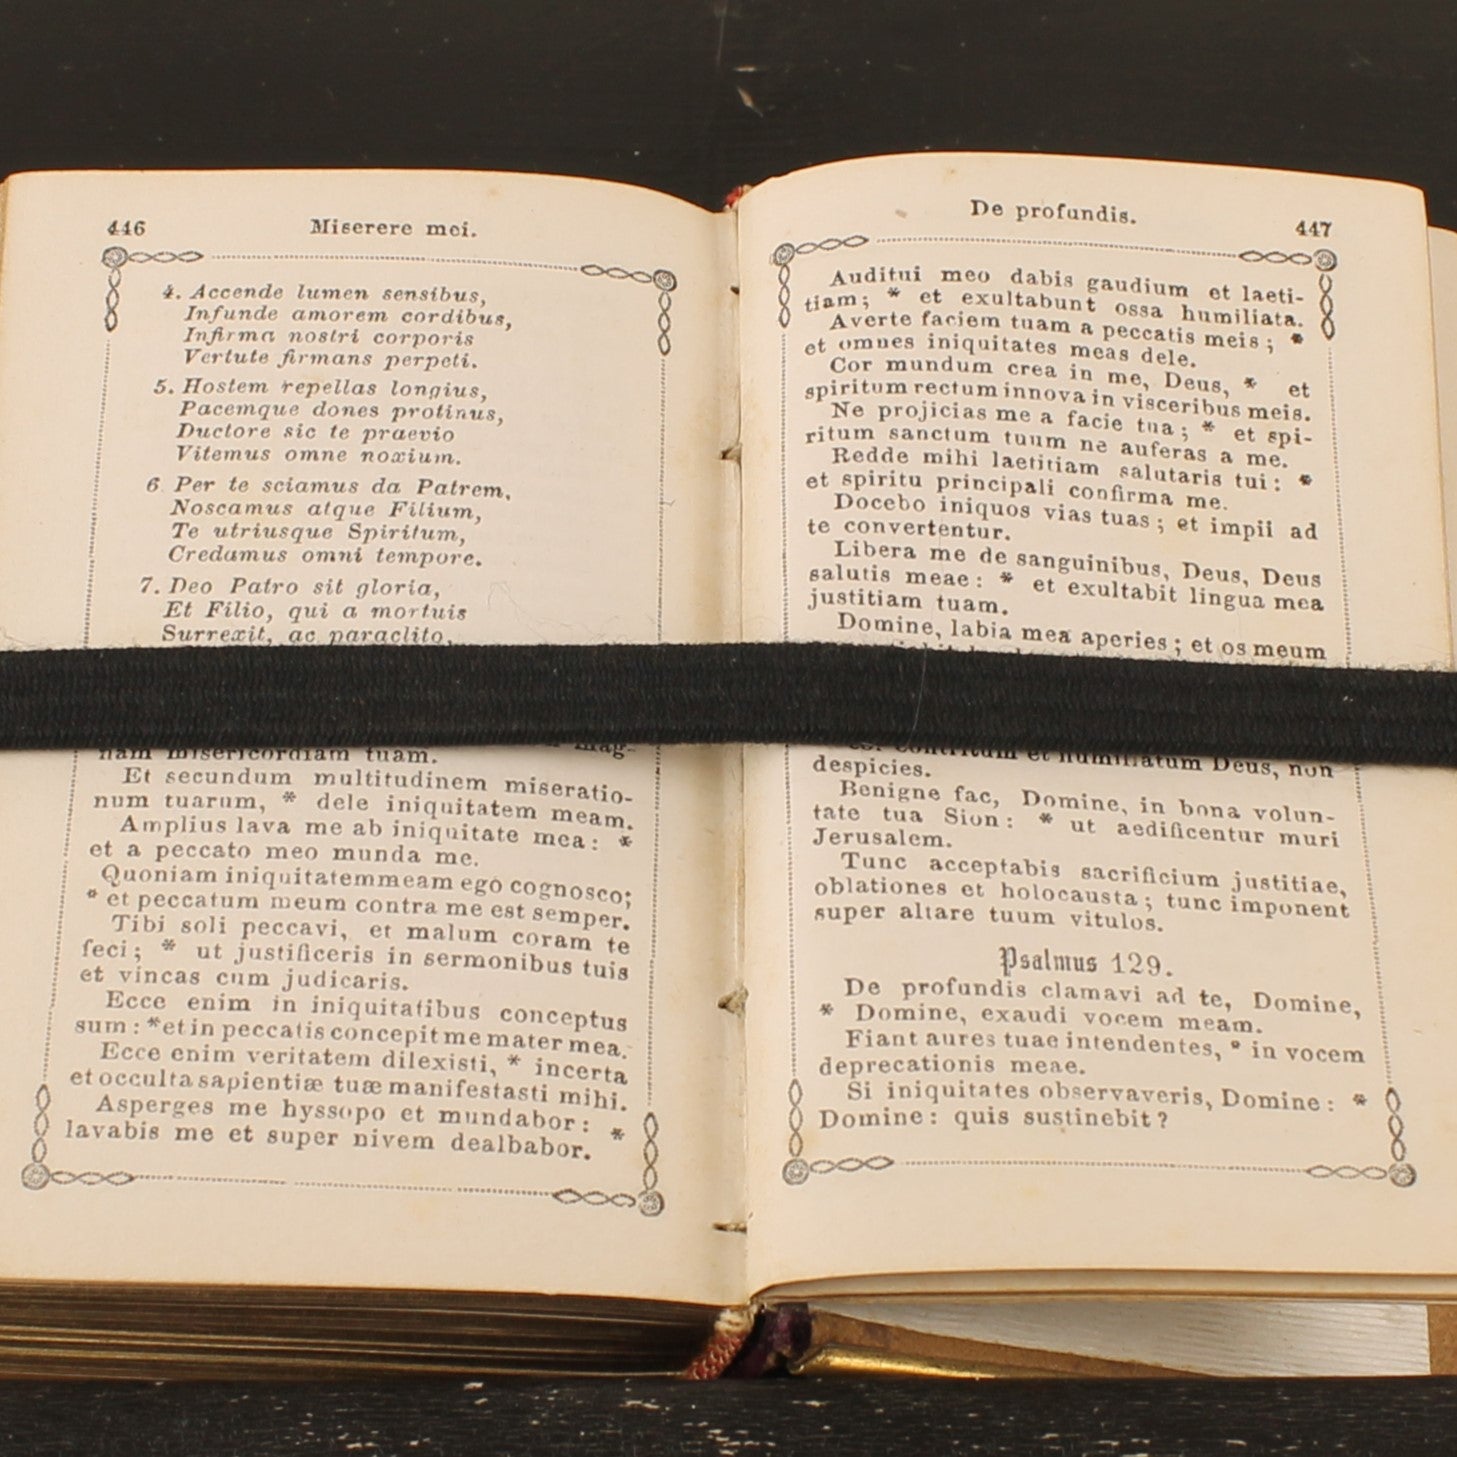 446
Miserere mei.
4. Accende lumen sensibus,
Infunde amorem cordibus,
Infirma nostri corporis
Vertute firmans perpeti.
5. Hostem repellas longius,
Pacemque dones protinus,
Ductore sic te praevio
Vitemus omne noxium.
6 Per te sciamus da Patrem,
Noscamus atque Filium,
Te utriusque Spiritum,
Credamus omni tempore.
7. Deo Patro sit gloria,
Et Filio, qui a mortuis
Surrexit, ac paraclito,
mag-
nam misericordiam tuam.
Et secundum multitudinem miseratio-
num tuarum, * dele iniquitatem meam.
Amplius lava me ab iniquitate mea: *
et a peccato meo munda me.
Quoniam iniquitatemmeam ego cognosco;
* et peccatum meum contra me est semper.
Tibi soli peccavi, et malum coram te
feci; * ut justificeris in sermonibus tuis
et vincas cum judicaris.
Ecce enim in iniquitatibus conceptus
sum: * et in peccatis concepit me mater mea.
Ecce enim veritatem dilexisti, * incerta
et occulta sapientiæ tuæ manifestasti mihi.
Asperges me hyssopo et mundabor: *
lavabis me et super nivem dealbabor.
De profundis.
447
Auditui meo dabis gaudium et laeti-
tiam; * et exultabunt ossa humiliata.
Averte faciem tuam a peccatis meis; *
et omnes iniquitates meas dele.
Cor mundum crea in me, Deus, * et
spiritum rectum innova in visceribus meis.
Ne projicias me a facie tua; * et spi-
ritum sanctum tuum ne auferas a me.
Redde mihi laetitiam salutaris tui: *
et spiritu principali confirma me.
Docebo iniquos vias tuas; et impii ad
te convertentur.
Libera me de sanguinibus, Deus, Deus
salutis meae: * et exultabit lingua mea
justitiam tuam.
Domine, labia mea aperies; et os meum
contritum et humiliatum Deus, non
despicies.
Benigne fac, Domine, in bona volun-
tate tua Sion: * ut aedificentur muri
Jerusalem.
Tunc acceptabis sacrificium justitiae,
oblationes et holocausta; tunc imponent
super altare tuum vitulos.
Psalmus 129.
De profundis clamavi ad te, Domine,
* Domine, exaudi vocem meam.
Fiant aures tuae intendentes, * in vocem
deprecationis meae.
Si iniquitates observaveris, Domine: *
Domine: quis sustinebit?